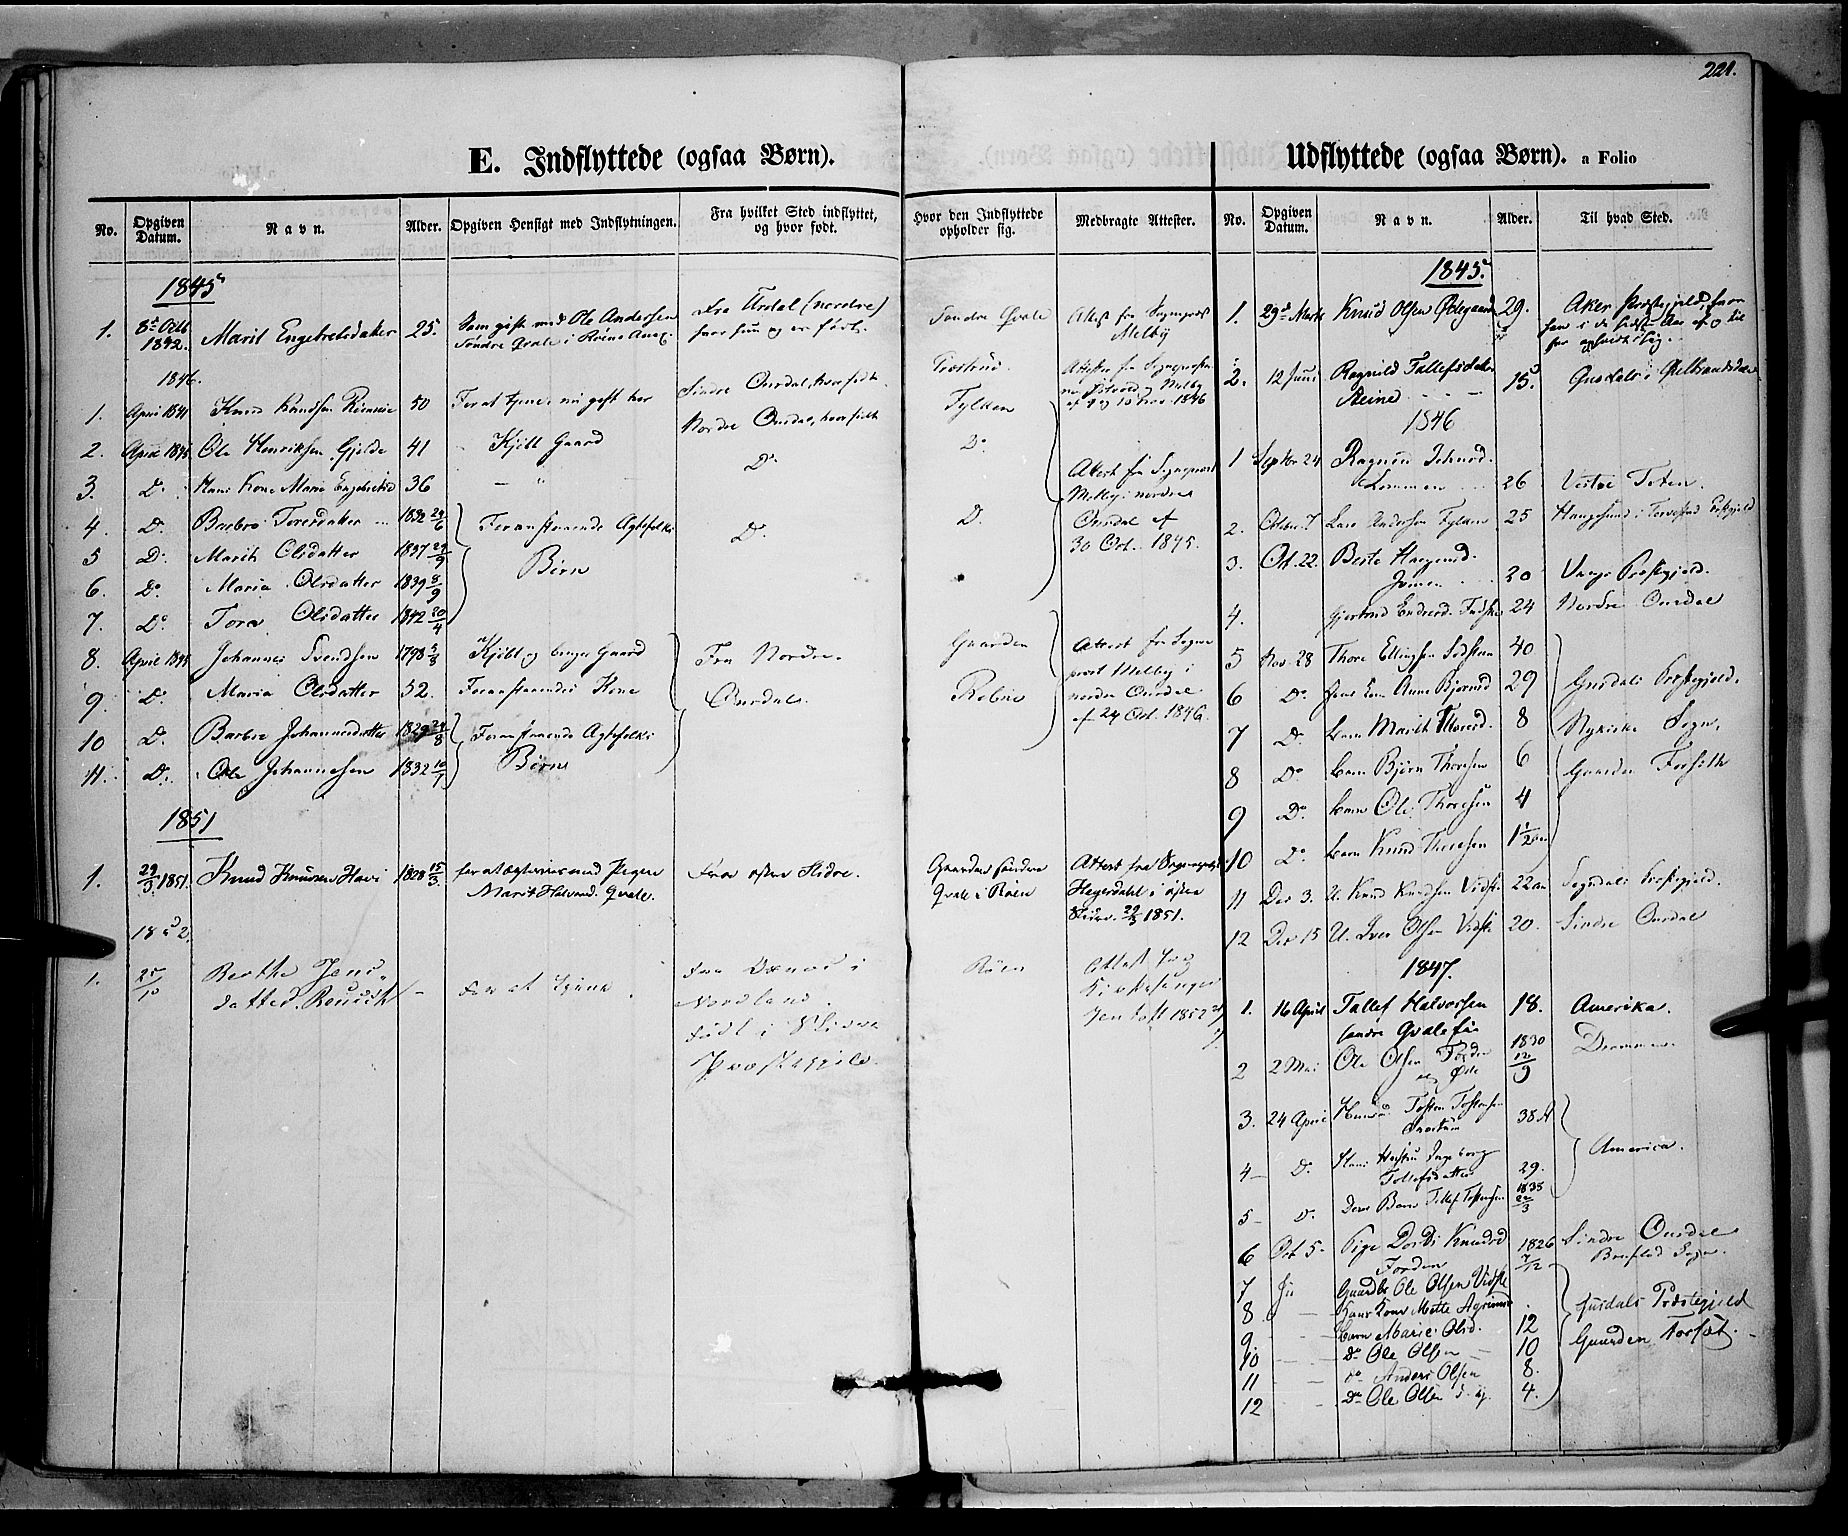 221.
E. Indflyttede (ogsaa Børn).
No. Opgiven Datum. Navn. Alder. Opgiven Hensigt med Indflytningen. Fra hvilket Sted indflyttet, og hvor født. Hvor den Indflyttede opholder sig. Medbragte Attester.
1845
1. 8de Octb 1842. Marit Engebretsdatter 25. Som gift med Ole Andersen Søndre Qvale i Røens Anex Fra Urdal (nordre) hvor hun og er født. Søndre Qvale Attest fra Sognepræst Melby
1846.
1. April 1841 Knud Knudsen 50 For at tjene, nu gift her Søndre Ourdal, hvor født
2. April 1845 Ole Henriksen Gjelde 41 Kjøbt Gaard Nordre Ourdal, hvor født Fylken
3. Do Hans Kone Marie Engebretsd 36 Do Do Attest fra Sognepræst Melby i nordre Ourdal af 30 Oct. 1845.
4. Do Barbro Toresdatter 1832 Foranstaaende Ægtefolks Børn Do D.
5 Do Marith Olsdatter 1837 29/9
6. Do Maria Olsdatter 1839 8/9
7. Do Tore Olsdatter 1842 20/4
8. April 1845 Johannes Svendsen 1798 Kjøbt og bruger Gaard Fra Nordre Ourdal. Gaarden Attest fra Sognepræst Melby i nordre Ourdal af 24 Oct. 1846.
9. D. Maria Olsdatter 52. Foranstaaendes Kone
10 D. Barbro Johannesdatter 1829 Foranstaaende Ægtefolks Børn
11. D. Ole Johannesen 1832
1851
1. 29/3 1851. Knud Knudsen 1828 15/3. for at ægte Pigen Marit Halvorsd. Qvale. Fra østre Slidre. Gaarden søndre Qvale i Røen Attest fra Sognepræst Hegerdahl i østre Slidre. 29/3 1851.
1852.
1. 25/10 Berthe Jensdatter - For at tjene Fra i Nordland. født i Slidre Præstegjeld. Røen Attest fra Kirkesanger 1852
Udflyttede (ogsaa Børn). a Folio
No. Opgiven Datum. Navn. Alder. Til hvad Sted.
1845.
1. 29de Marts Knud Olsen Ødegaard 29. Aker Præstegjeld, hvor han i de sidste Aar
2. 12 Juni Ragnild Tollefsdatter Reine 15. Gusdals i Gulbrandsdalen
1846
1 Septbr 24 Lommen 26 Vestre Toten.
2. Octbr. 7 Lars Andersen Fylken 25 Haugesund i Torvestad Prstgjeld
3. Oct. 22. Berte 20 Vangs Præstegjeld.
4. Gjertrud Endresd. 24 Nordre Ourdal
5 Nov. 28 Thore Ellingsen 40 Gusdals Præstegjeld, Nykirke Sogn, Gaarden Forseth
6 Do hans Kone Anne Bjørnsd 29
7 D. barn Marith Thoresd. 8
8 Do barn Bjørn Thoresen 6
9 D. barn Ole Thoresen 4
10 D. barn Knud Thoresen 1 1/2
11 Des 3. U. Knud Knudsen Vidste 22 Sogndals Præstegjeld.
12 Des 15 U. Iver Olsen Vidste 20. Søndre Ourdal
1847.
1. 16 April Tollef Halvorsen søndre Qvale 18. Amerika.
2 2 Mai Ole Olsen 1830 Drammen
3. 24 April Tosten Tostensen 38 America.
4 - D. Hans Hustru Ingeborg Tollefsdatter 29.
5 - D. Deres Barn Tollef Tostensen 1838
6 Oct 5. Pige Knudsd 1826 7/12 Søndre Ourdal Sogn.
7 Gaardbr. Ole Olsen Vidste Gusdals Præstegjeld Gaarden Forset.
8. Hans Kone Mette
9. barn Marie Olsd. 12
10 Do Ole Olsen 10
11 Do Anders Olsen 8.
12 Do Ole Olsen 4.